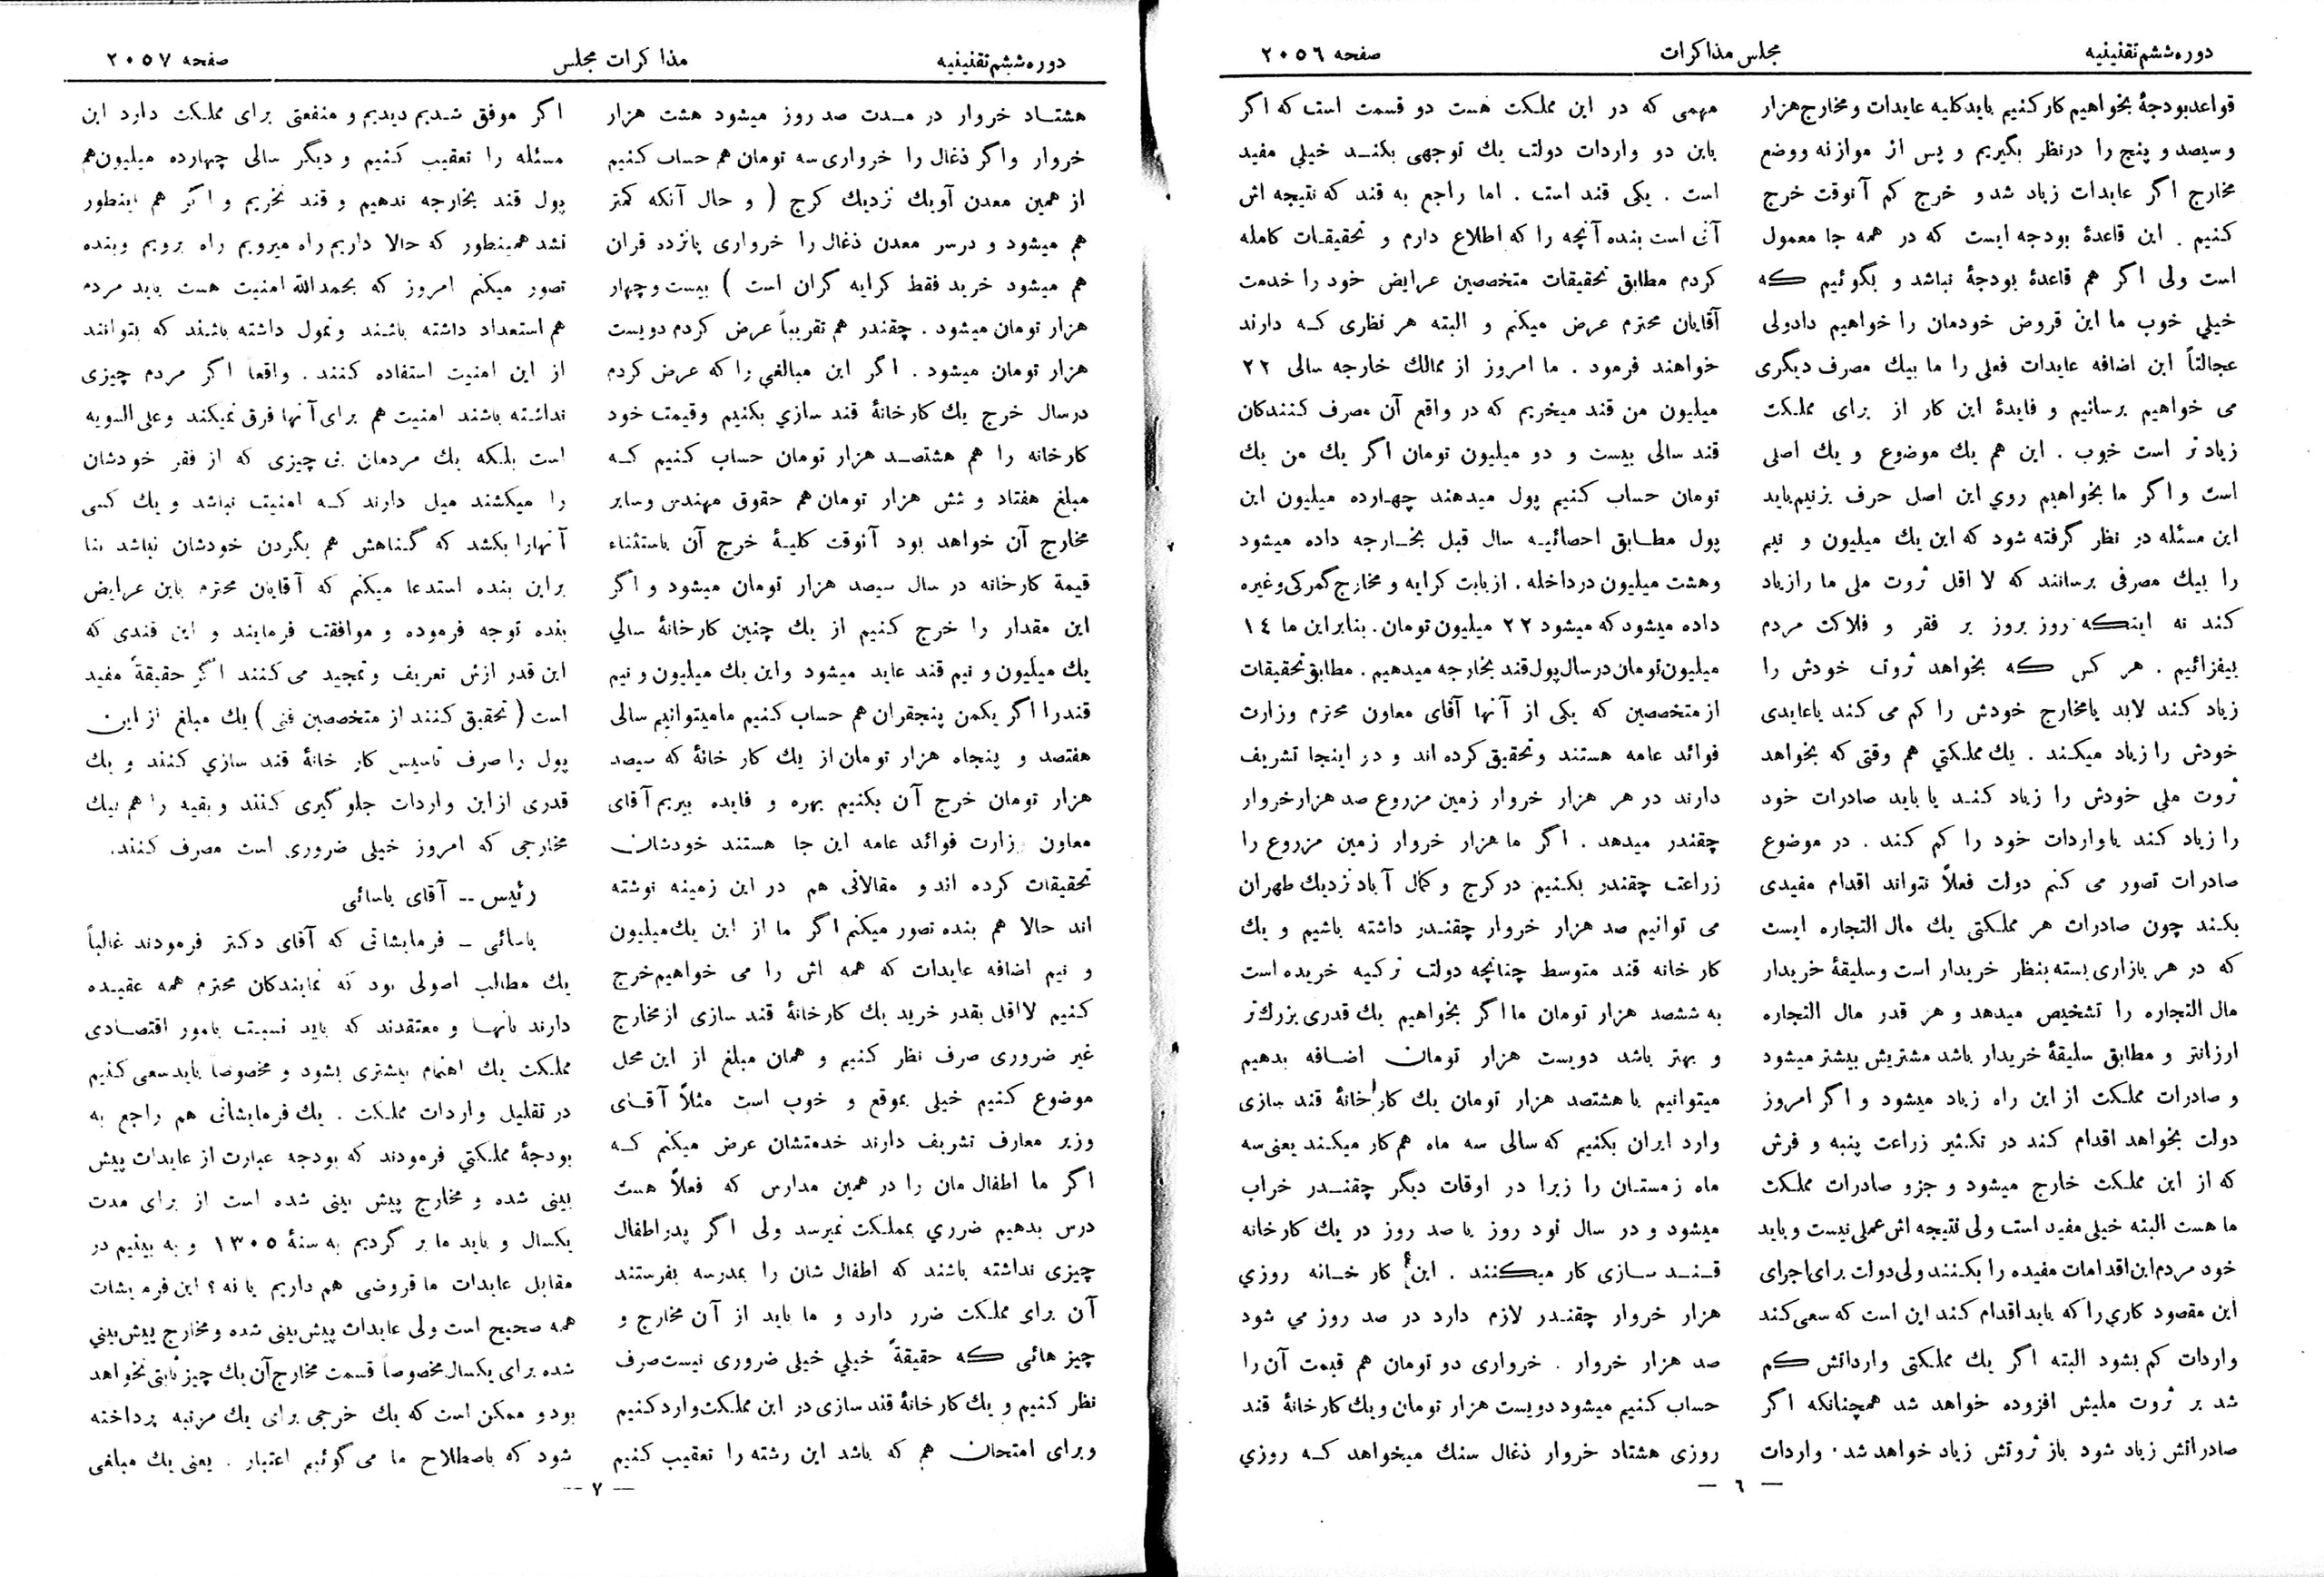 دوره ششم تقنینیه
مجلس مذاکرات
صفحه ۲۰۵۶
قواعد بودجهٔ بخواهیم کار کنیم باید کلیه عایدات و مخارج هزار
و سیصد و پنج را در نظر بگیریم و پس از موازنه و وضع
مخارج اگر عایدات زیاد شد و خرج کم آنوقت خرج
کنیم . این قاعدهٔ بودجه ایست که در همه جا معمول
است ولی اگر هم قاعدهٔ بودجهٔ نباشد و بگوئیم که
خیلی خوب ما این قروض خودمان را خواهیم داد ولی
عجالتاً این اضافه عایدات فعلی را ما بیك مصرف دیگری
می خواهیم برسانیم و فایدهٔ این کار از برای مملکت
زیادتر است خوب . این هم یك موضوع و یك اصلی
است و اگر ما بخواهیم روی این اصل حرف بزنیم باید
این مسئله در نظر گرفته شود که این یك میلیون و نیم
را بیك مصرفی برسانند که لااقل ثروت ملی ما را زیاد
کند نه اینکه روز بروز بر فقر و فلاکت مردم
بیفزائیم . هر کس که بخواهد ثروت خودش را
زیاد کند لابد یا مخارج خودش را کم می کند یا عایدی
خودش را زیاد میکند . یك مملکتی هم وقتی که بخواهد
ثروت ملی خودش را زیاد کند یا باید صادرات خود
را زیاد کند یا واردات خود را کم کند . در موضوع
صادرات تصور می کنم دولت فعلاً نتواند اقدام مفیدی
بکند چون صادرات هر مملکتی یك مال التجاره ایست
که در هر بازاری بسته بنظر خریدار است و سلیقهٔ خریدار
مال التجاره را تشخیص میدهد و هر قدر مال التجاره
ارزانتر و مطابق سلیقهٔ خریدار باشد مشتریش بیشتر میشود
و صادرات مملکت از این راه زیاد میشود و اگر امروز
دولت بخواهد اقدام کند در تکثیر زراعت پنبه و فرش
که از این مملکت خارج میشود و جزو صادرات مملکت
ما هست البته خیلی مفید است ولی نتیجه اش عملی نیست و باید
خود مردم این اقدامات مفیده را بکنند ولی دولت برای اجرای
این مقصود کاری را که باید اقدام کند این است که سعی کند
واردات کم بشود البته اگر یك مملکتی وارداتش کم
شد بر ثروت ملیش افزوده خواهد شد همچنانکه اگر
صادراتش زیاد شود باز ثروتش زیاد خواهد شد . واردات
مهمی که در این مملکت هست دو قسمت است که اگر
باین دو واردات دولت یك توجهی بکند خیلی مفید
است . یکی قند است . اما راجع به قند که نتیجه اش
آنی است بنده آنچه را که اطلاع دارم و تحقیقات کامله
کردم مطابق تحقیقات متخصصین عرایض خود را خدمت
آقایان محترم عرض میکنم و البته هر نظری که دارند
خواهند فرمود . ما امروز از ممالك خارجه سالی ۲۲
میلیون من قند میخریم که در واقع آن مصرف کنندگان
قند سالی بیست و دو میلیون تومان اگر یك من یك
تومان حساب کنیم پول میدهند چهارده میلیون این
پول مطابق احصائیه سال قبل بخارجه داده میشود
و هشت میلیون در داخله . از بابت کرایه و مخارج گمرکی و غیره
داده میشود که میشود ۲۲ میلیون تومان . بنابراین ما ۱٤
میلیون تومان در سال پول قند بخارجه میدهیم . مطابق تحقیقات
از متخصصین که یکی از آنها آقای معاون محترم وزارت
فوائد عامه هستند و تحقیق کرده اند و در اینجا تشریف
دارند در هر هزار خروار زمین مزروع صد هزار خروار
چقندر میدهد . اگر ما هزار خروار زمین مزروع را
زراعت چقندر بکنیم در کرج و کمال آباد نزدیك طهران
می توانیم صد هزار خروار چقندر داشته باشیم و یك
کارخانه قند متوسط چنانچه دولت ترکیه خریده است
به ششصد هزار تومان ما اگر بخواهیم یك قدری بزرگتر
و بهتر باشد دویست هزار تومان اضافه بدهیم
میتوانیم با هشتصد هزار تومان یك کارخانهٔ قند سازی
وارد ایران بکنیم که سالی سه ماه هم کار میکند یعنی سه
ماه زمستان را زیرا در اوقات دیگر چقندر خراب
میشود و در سال نود روز یا صد روز در یك کارخانه
قند سازی کار میکنند . این کارخانه روزی
هزار خروار چقندر لازم دارد در صد روز می شود
صد هزار خروار . خرواری دو تومان هم قیمت آن را
حساب کنیم میشود دویست هزار تومان و یك کارخانهٔ قند
روزی هشتاد خروار ذغال سنك میخواهد که روزی
— ٦ —
دوره ششم تقنینیه
مذاکرات مجلس
صفحه ۲۰۵۷
هشتاد خروار در مدت صد روز میشود هشت هزار
خروار و اگر ذغال را خرواری سه تومان هم حساب کنیم
از همین معدن آوبك نزدیك کرج ( و حال آنکه کمتر
هم میشود و در سر معدن ذغال را خرواری پانزده قران
هم میشود خرید فقط کرایه گران است ) بیست و چهار
هزار تومان میشود . چقندر هم تقریباً عرض کردم دویست
هزار تومان میشود . اگر این مبالغی را که عرض کردم
در سال خرج یك کارخانهٔ قند سازی بکنیم و قیمت خود
کارخانه را هم هشتصد هزار تومان حساب کنیم که
مبلغ هفتاد و شش هزار تومان هم حقوق مهندس و سایر
مخارج آن خواهد بود آنوقت کلیهٔ خرج آن باستثناء
قیمة کارخانه در سال سیصد هزار تومان میشود و اگر
این مقدار را خرج کنیم از یك چنین کارخانهٔ سالی
یك میلیون و نیم قند عاید میشود و این یك میلیون و نیم
قند را اگر یکمن پنجقران هم حساب کنیم ما میتوانیم سالی
هفتصد و پنجاه هزار تومان از یك کارخانهٔ که سیصد
هزار تومان خرج آن بکنیم بهره و فایده ببریم آقای
معاون وزارت فوائد عامه این جا هستند خودشان
تحقیقات کرده اند و مقالاتی هم در این زمینه نوشته
اند حالا هم بنده تصور میکنم اگر ما از این یك میلیون
و نیم اضافه عایدات که همه اش را می خواهیم خرج
کنیم لااقل بقدر خرید یك کارخانهٔ قند سازی از مخارج
غیر ضروری صرف نظر کنیم و همان مبلغ از این محل
موضوع کنیم خیلی بموقع و خوب است مثلاً آقای
وزیر معارف تشریف دارند خدمتشان عرض میکنم که
اگر ما اطفال مان را در همین مدارس که فعلاً هست
درس بدهیم ضرری بمملکت نمیرسد ولی اگر پدر اطفال
چیزی نداشته باشند که اطفال شان را بمدرسه بفرستند
آن برای مملکت ضرر دارد و ما باید از آن مخارج و
چیز هائی که حقیقةً خیلی خیلی ضروری نیست صرف
نظر کنیم و یك کارخانهٔ قند سازی در این مملکت وارد کنیم
و برای امتحان هم که باشد این رشته را تعقیب کنیم
اگر موفق شدیم دیدیم و منفعتی برای مملکت دارد این
مسئله را تعقیب کنیم و دیگر سالی چهارده میلیون هم
پول قند بخارجه ندهیم و قند نخریم و اگر هم اینطور
نشد همینطور که حالا داریم راه میرویم راه برویم و بنده
تصور میکنم امروز که بحمدالله امنیت هست باید مردم
هم استعداد داشته باشند و تمول داشته باشند که بتوانند
از این امنیت استفاده کنند . واقعا اگر مردم چیزی
نداشته باشند امنیت هم برای آنها فرق نمیکند و علی السویه
است بلکه یك مردمان بی چیزی که از فقر خودشان
را میکشند میل دارند که امنیت نباشد و یك کسی
آنها را بکشد که گناهش هم بگردن خودشان نباشد بنا
براین بنده استدعا میکنم که آقایان محترم باین عرایض
بنده توجه فرموده و موافقت فرمایند و این قندی که
این قدر ازش تعریف و تمجید می کنند اگر حقیقةً مفید
است ( تحقیق کنند از متخصصین فنی ) یك مبلغ از این
پول را صرف تاسیس کارخانهٔ قند سازی کنند و یك
قدری از این واردات جلوگیری کنند و بقیه را هم بیك
مخارجی که امروز خیلی ضروری است مصرف کنند.
رئیس -- آقای یاسائی
یاسائی - فرمایشاتی که آقای دکتر فرمودند غالباً
یك مطالب اصولی بود که نمایندکان محترم همه عقیده
دارند بآنها و معتقدند که باید نسبت بامور اقتصادی
مملکت یك اهتمام بیشتری بشود و مخصوصا باید سعی کنیم
در تقلیل واردات مملکت . یك فرمایشاتی هم راجع به
بودجهٔ مملکتی فرمودند که بودجه عبارت از عایدات پیش
بینی شده و مخارج پیش بینی شده است از برای مدت
یکسال و باید ما بر گردیم به سنهٔ ۱۳۰۵ و به بینیم در
مقابل عایدات ما قروضی هم داریم یا نه ؟ این فرمایشات
همه صحیح است ولی عایدات پیش بینی شده و مخارج پیش بینی
شده برای یکسال مخصوصاً قسمت مخارج آن یك چیز ثابتی نخواهد
بود و ممکن است که یك خرجی برای یك مرتبه پرداخته
شود که باصطلاح ما می گوئیم اعتبار . یعنی یك مبلغی
— ۷ —